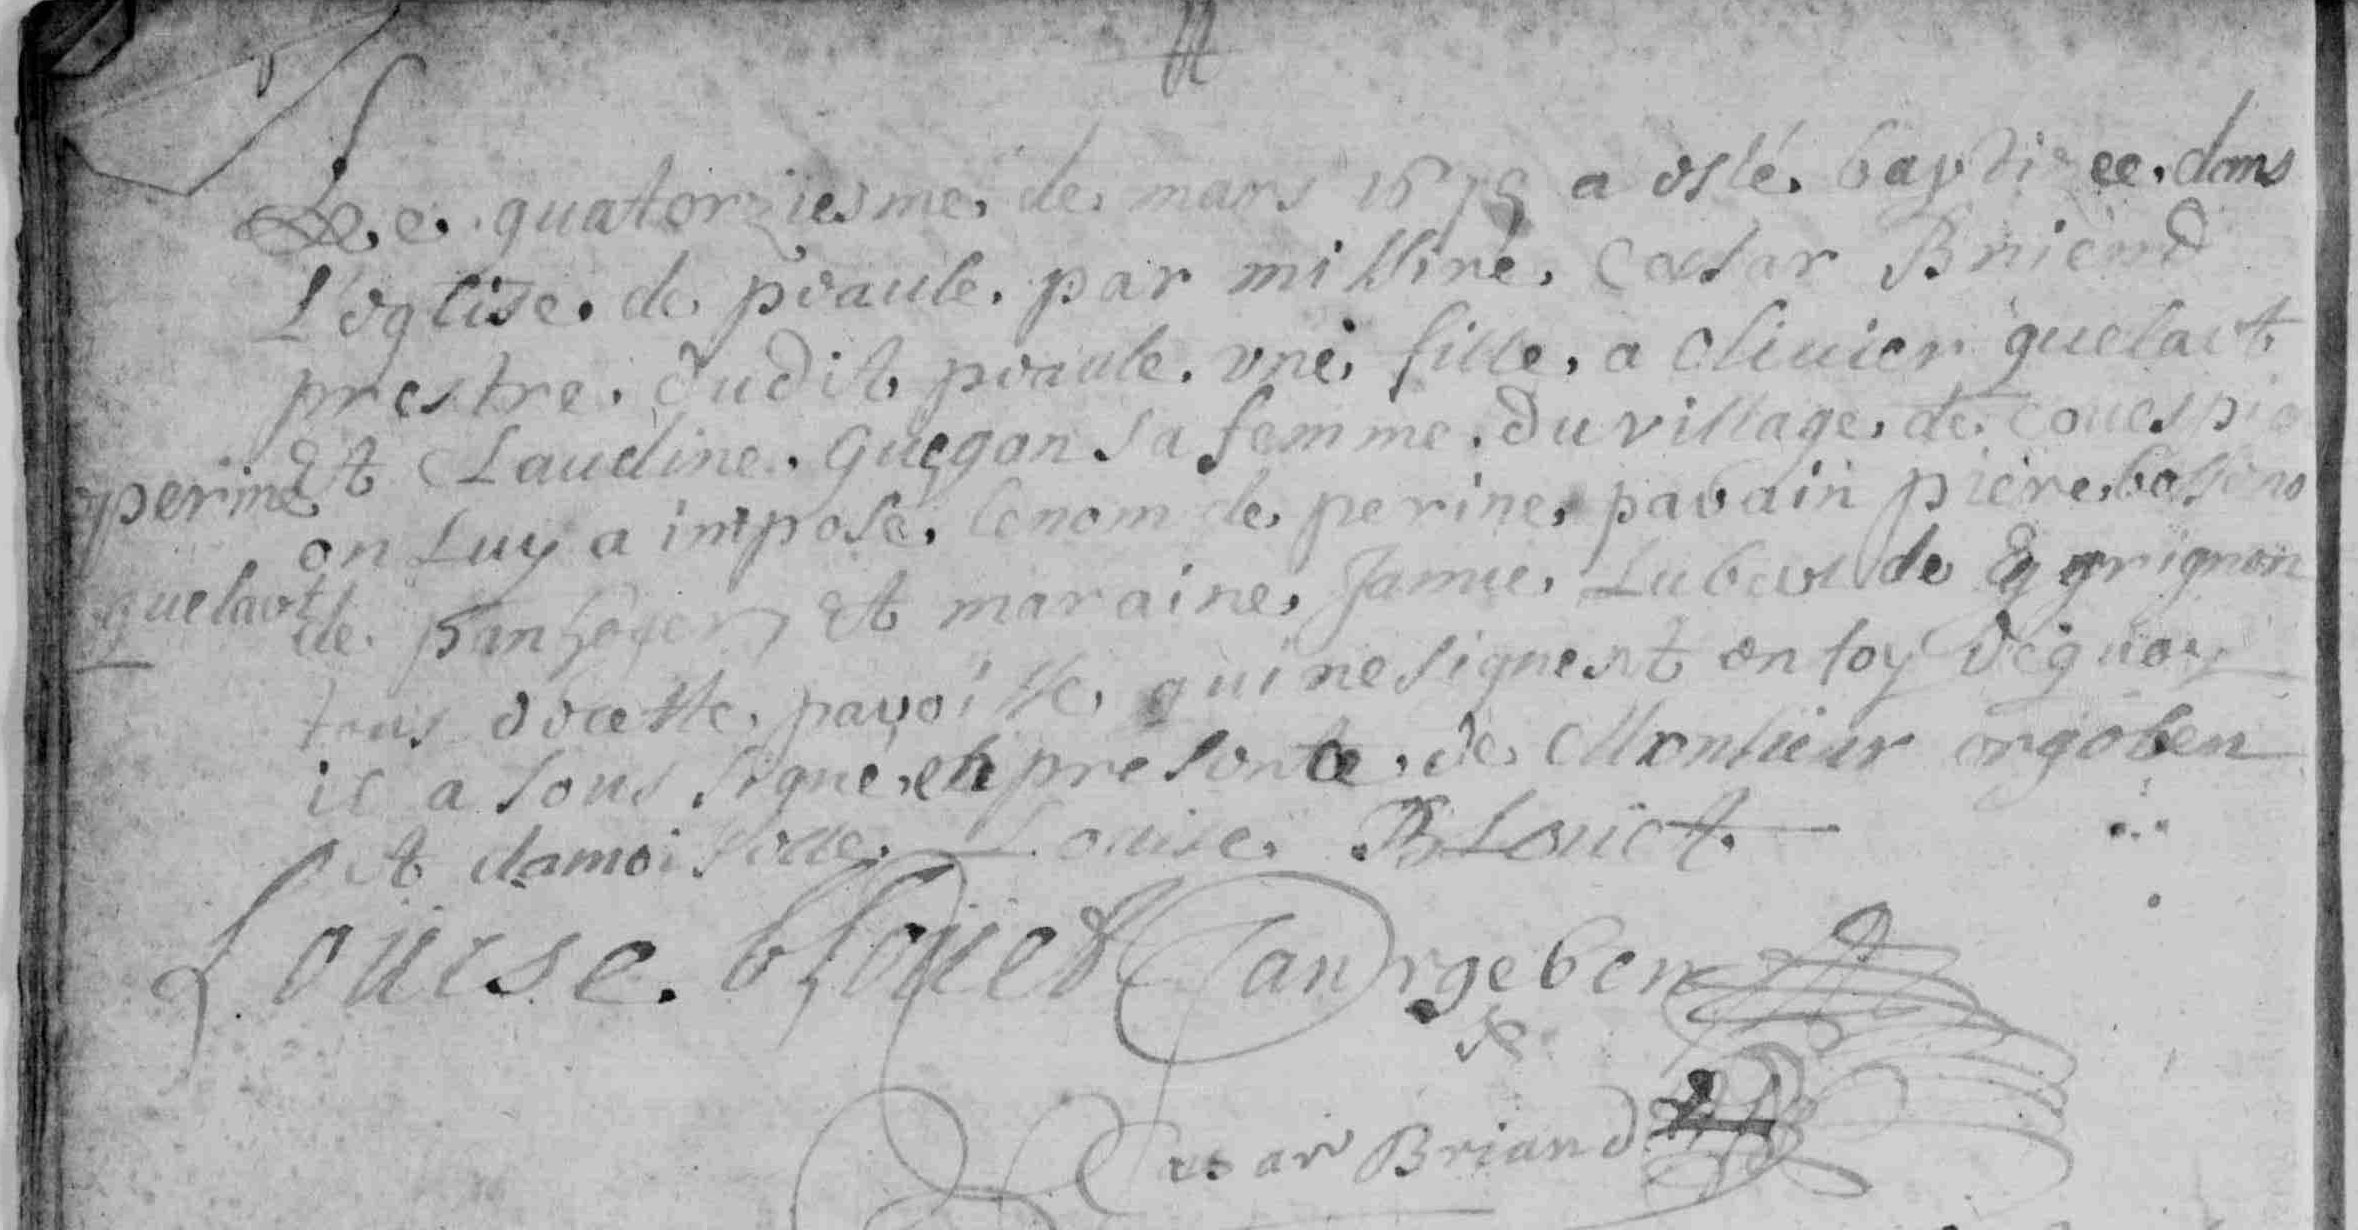 Le quatorziesme de mars 1675 a esté baptizee dans
L'eglise de peaule par missire Caesar Briend
prestre dudit peaule une fille a olivier quelavt
Et Claudine Guegan sa femme du village de
perine
on Luy a imposé le nom de perine parain piere
quelavt
de Et maraine Janne Lubert de grignon
tous de cette paroisse qui ne signent en foy dequoy
il a sous signé en presente de Monsieur orgeben
Et damoiselle Louise Blouet
Louise blouet Jan orgeben
Cesar Briand